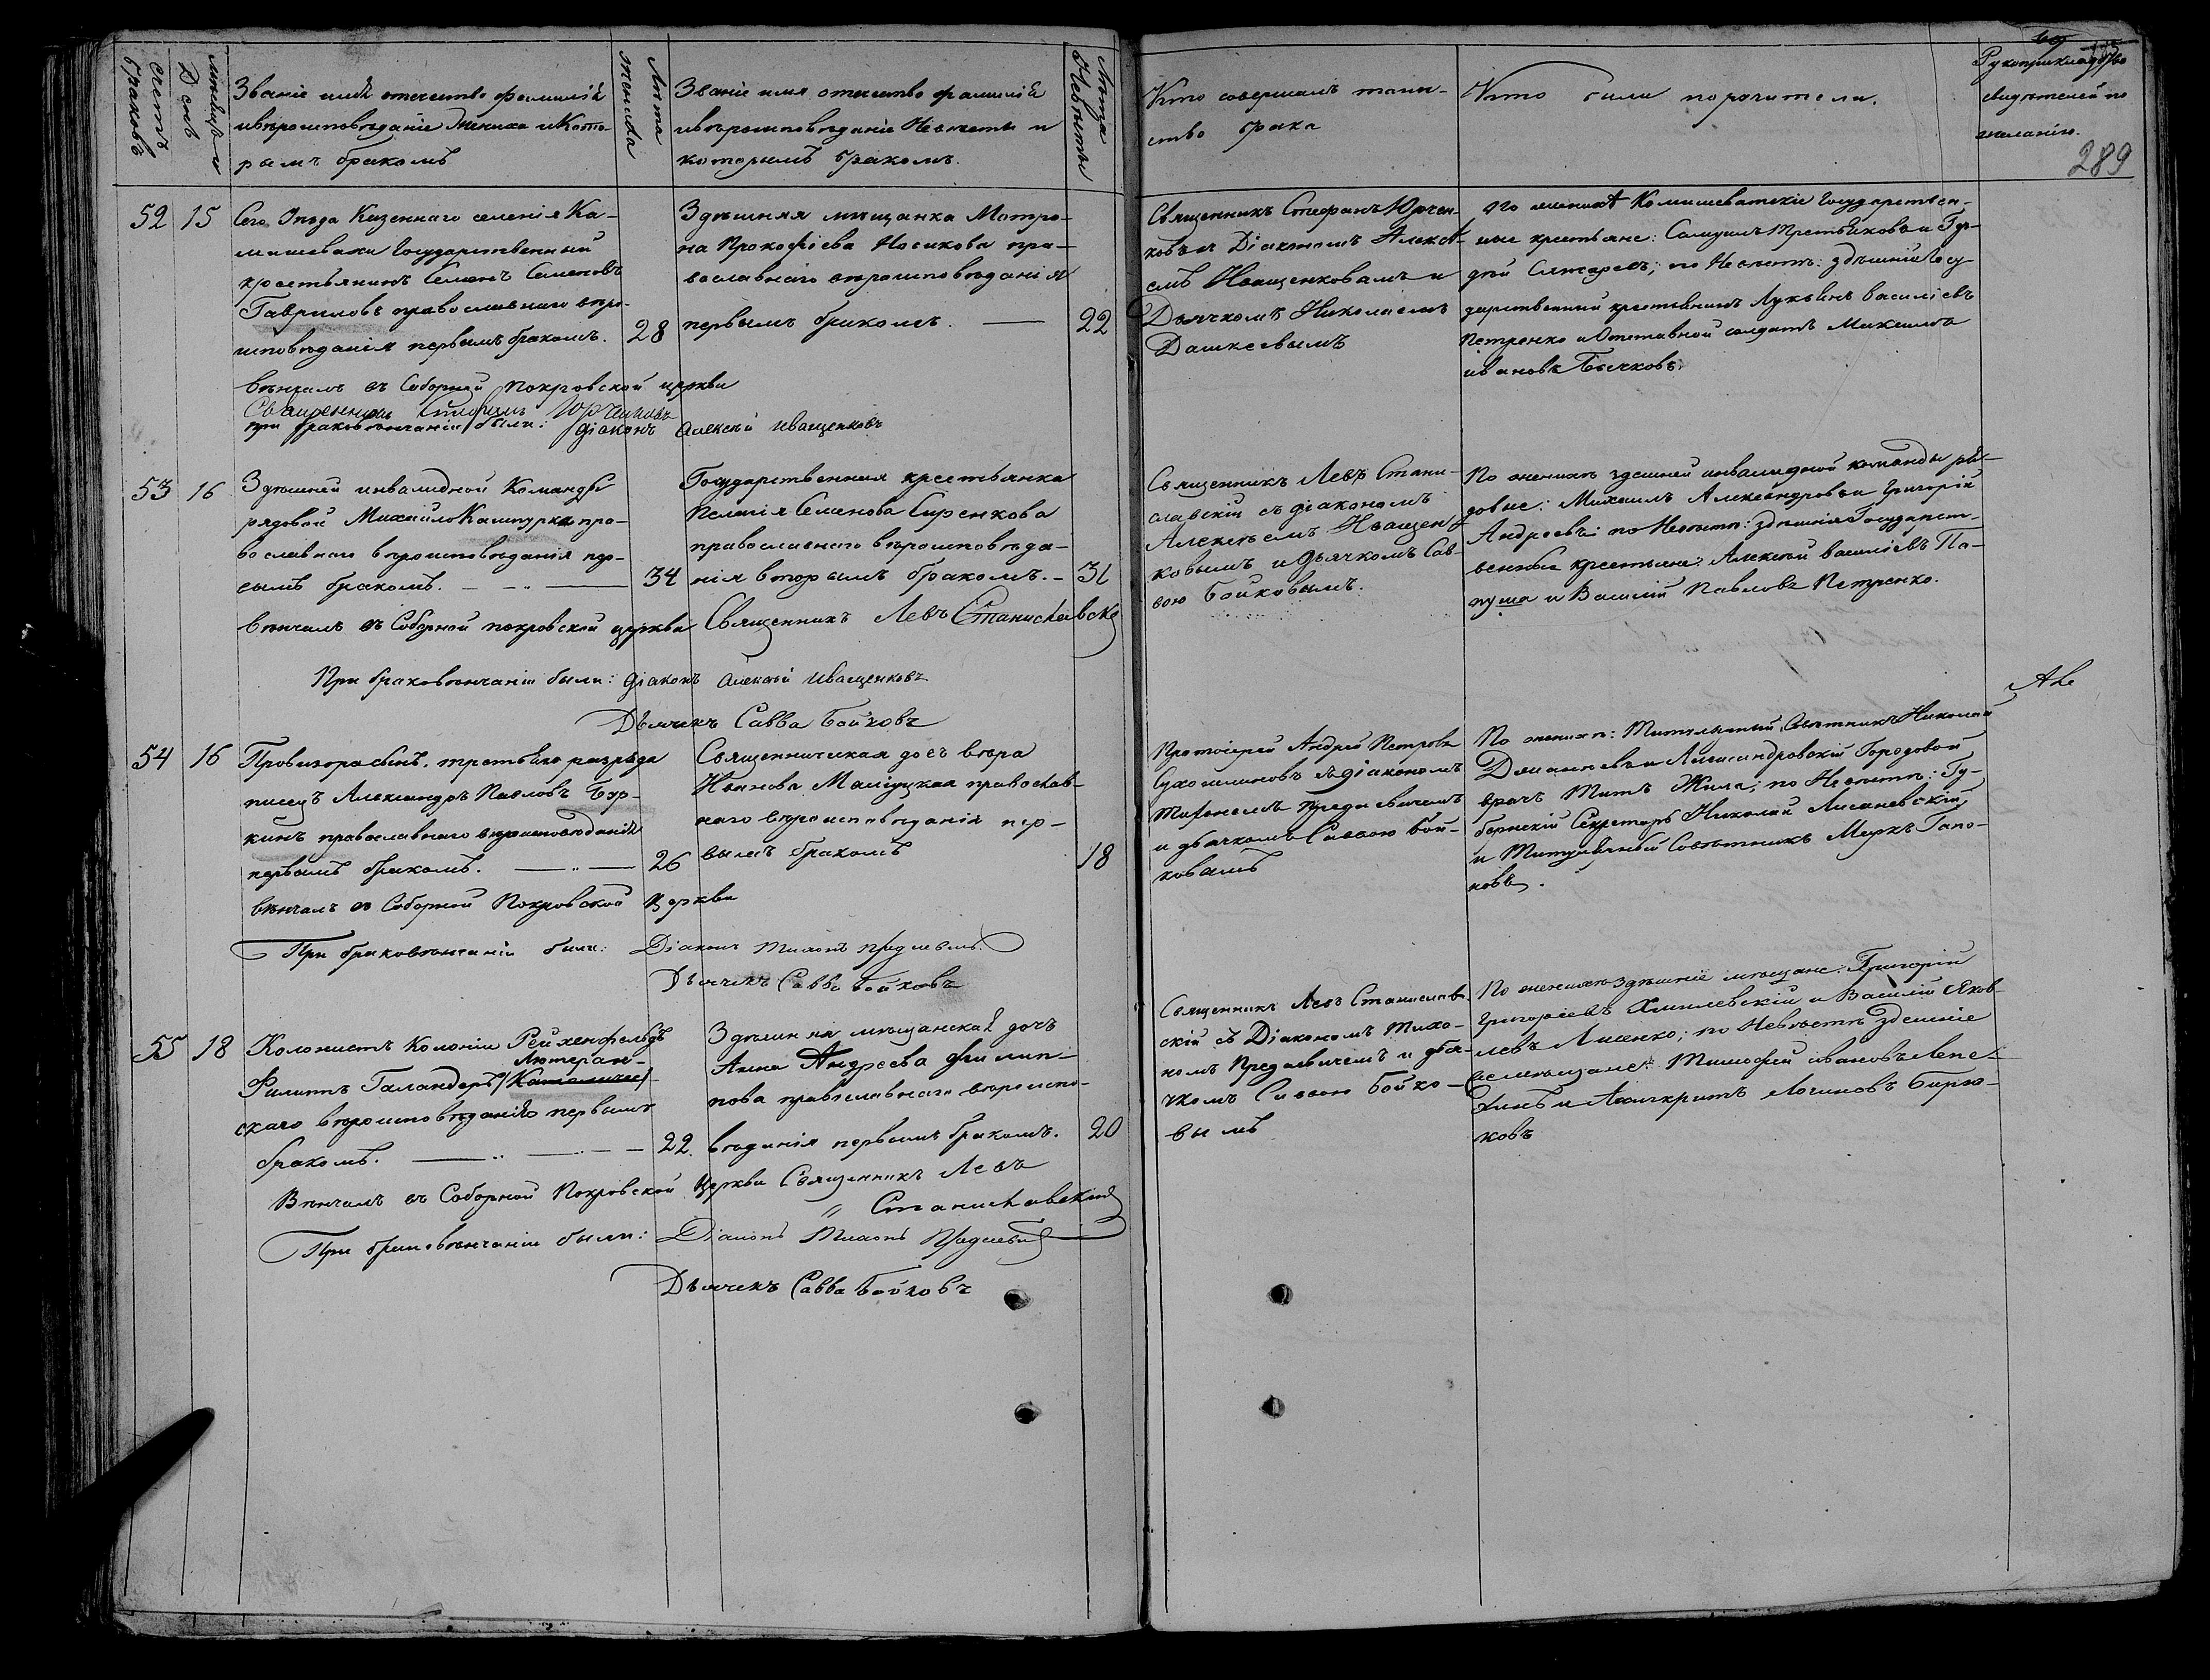 счетъ браковъ
День
Званіе имя отечество фамилія
и вѣроисповѣданіе Жениха и Кото-
рымъ бракомъ
Лѣта жениха
Званіе имя отечество фамилія
и вѣроисповѣданіе Невѣсты и
которымъ бракомъ.
Лѣта Невѣсты
Кто совершалъ таин-
ство брака
Кто были поручители.
Рукоприкладство
свидѣтелей по
желанію.
289
52
15
Сего Уѣзда Казеннаго селенія Ка-
мишеваки Государственный
крестьянинъ Семенъ Семеновъ
Гавриловъ православнаго вѣро-
исповѣданія первымъ бракомъ.
28
Здѣшняя мѣщанка Матро-
на Прокофіева Носикова пра-
вославнаго вѣроисповѣданія
первымъ бракомъ.
22
Священникъ Стефанъ Юрчен-
ковъ съ Діакономъ Алексѣ-
емъ Иващенковымъ и
Дьячкомъ Николаемъ
Дашкевымъ
По женихѣ Комишеватскіе Государствен-
ные крестьяне: Самуилъ Третьяковъ и Гор-
дѣй Слюсаревъ; по Невѣстѣ: здѣшній Госу-
дарственный крестьянинъ Лукьянъ Василіевъ
Петренко и Отставной солдатъ Михаилъ
Ивановъ Бычковъ.
вѣнчалъ въ Соборной Покровской церкви
Священникъ Стефанъ Юрченковъ
при браковѣнчаніи были: діаконъ Алексѣй Иващенковъ
53
16
Здѣшней инвалидной Команды
рядовой Михайло Кашпурка пра-
вославнаго вѣроисповѣданія пер-
вымъ бракомъ.
34
Государственная крестьянка
Пелагія Семенова Сиренкова
православнаго вѣроисповѣда-
нія вторымъ бракомъ.
31
Священникъ Левъ Стани-
славскій съ діакономъ
Алексѣемъ Иващен-
ковымъ и дьячкомъ Сав-
вою Бойковымъ.
По женихѣ здѣшней инвалидной команды ря-
довые: Михаилъ Александровъ и Григорій
Андреевъ; по Невѣстѣ: здѣшніе Государст-
венные крестьяне: Алексѣй Василіевъ Па-
пуша и Василій Павловъ Петренко.
Вѣнчалъ въ Соборной покровской церкви Священникъ Левъ Станиславскій
При браковѣнчаніи были: діаконъ Алексѣй Иващенковъ
Дьячекъ Савва Бойковъ
54
16
Провизора сынъ. третьяго разряда
писецъ Александръ Павловъ Бур-
кинъ православнаго вѣроисповѣданія
первымъ бракомъ.
26
Священническая дочь вѣра
Иванова Малуцкая православ-
наго вѣроисповѣданія пер-
вымъ бракомъ
18
Протоіерей Андрей Петровъ
Сухомлиновъ съ діакономъ
Тихономъ Предаевичемъ
и дьячкомъ Саввою Бой-
ковымъ
По женихѣ: Титулярный Совѣтникъ Николай
Демьяневъ и Александровскій Городовой
врачъ Титъ Жила; по Невѣстѣ: Гу-
бернскій Секретарь Николай Лисаневскій
и Титулярный Совѣтникъ Маркъ Гапо-
новъ.
вѣнчалъ въ Соборной Покровской Церкви
При браковѣнчаніи были: Діаконъ Тихонъ Предаевичъ
Дьячекъ Савва Бойковъ
55
18
Колонистъ Колоніи Рейхенфельдъ
Лютеран-
Филипъ Галандеръ /Католичес/-
скаго вѣроисповѣданія первымъ
бракомъ.
22.
Здѣшняя мѣщанская дочь
Анна Андреева Филип-
пова православнаго вѣроиспо-
вѣданія первымъ бракомъ.
20
Священникъ Левъ Станислав-
скій съ Діакономъ Тихо-
номъ Предаевичемъ и дья-
чкомъ Саввою Бойко-
вымъ
По женихѣ здѣшніе мѣщане: Григорій
Григоріевъ Хмилевскій и Василій Яков-
левъ Лисенко; по Невѣстѣ здешніе
же мѣщане: Тимофей Ивановъ Лепе-
хинъ и Логиновъ Бирю-
ковъ
Вѣнчалъ въ Соборной Покровской Церкви Священникъ Левъ
Станиславскій
При браковѣнчаніи были: Діаконъ Тихонъ Предаевичъ
Дьячекъ Савва Бойковъ